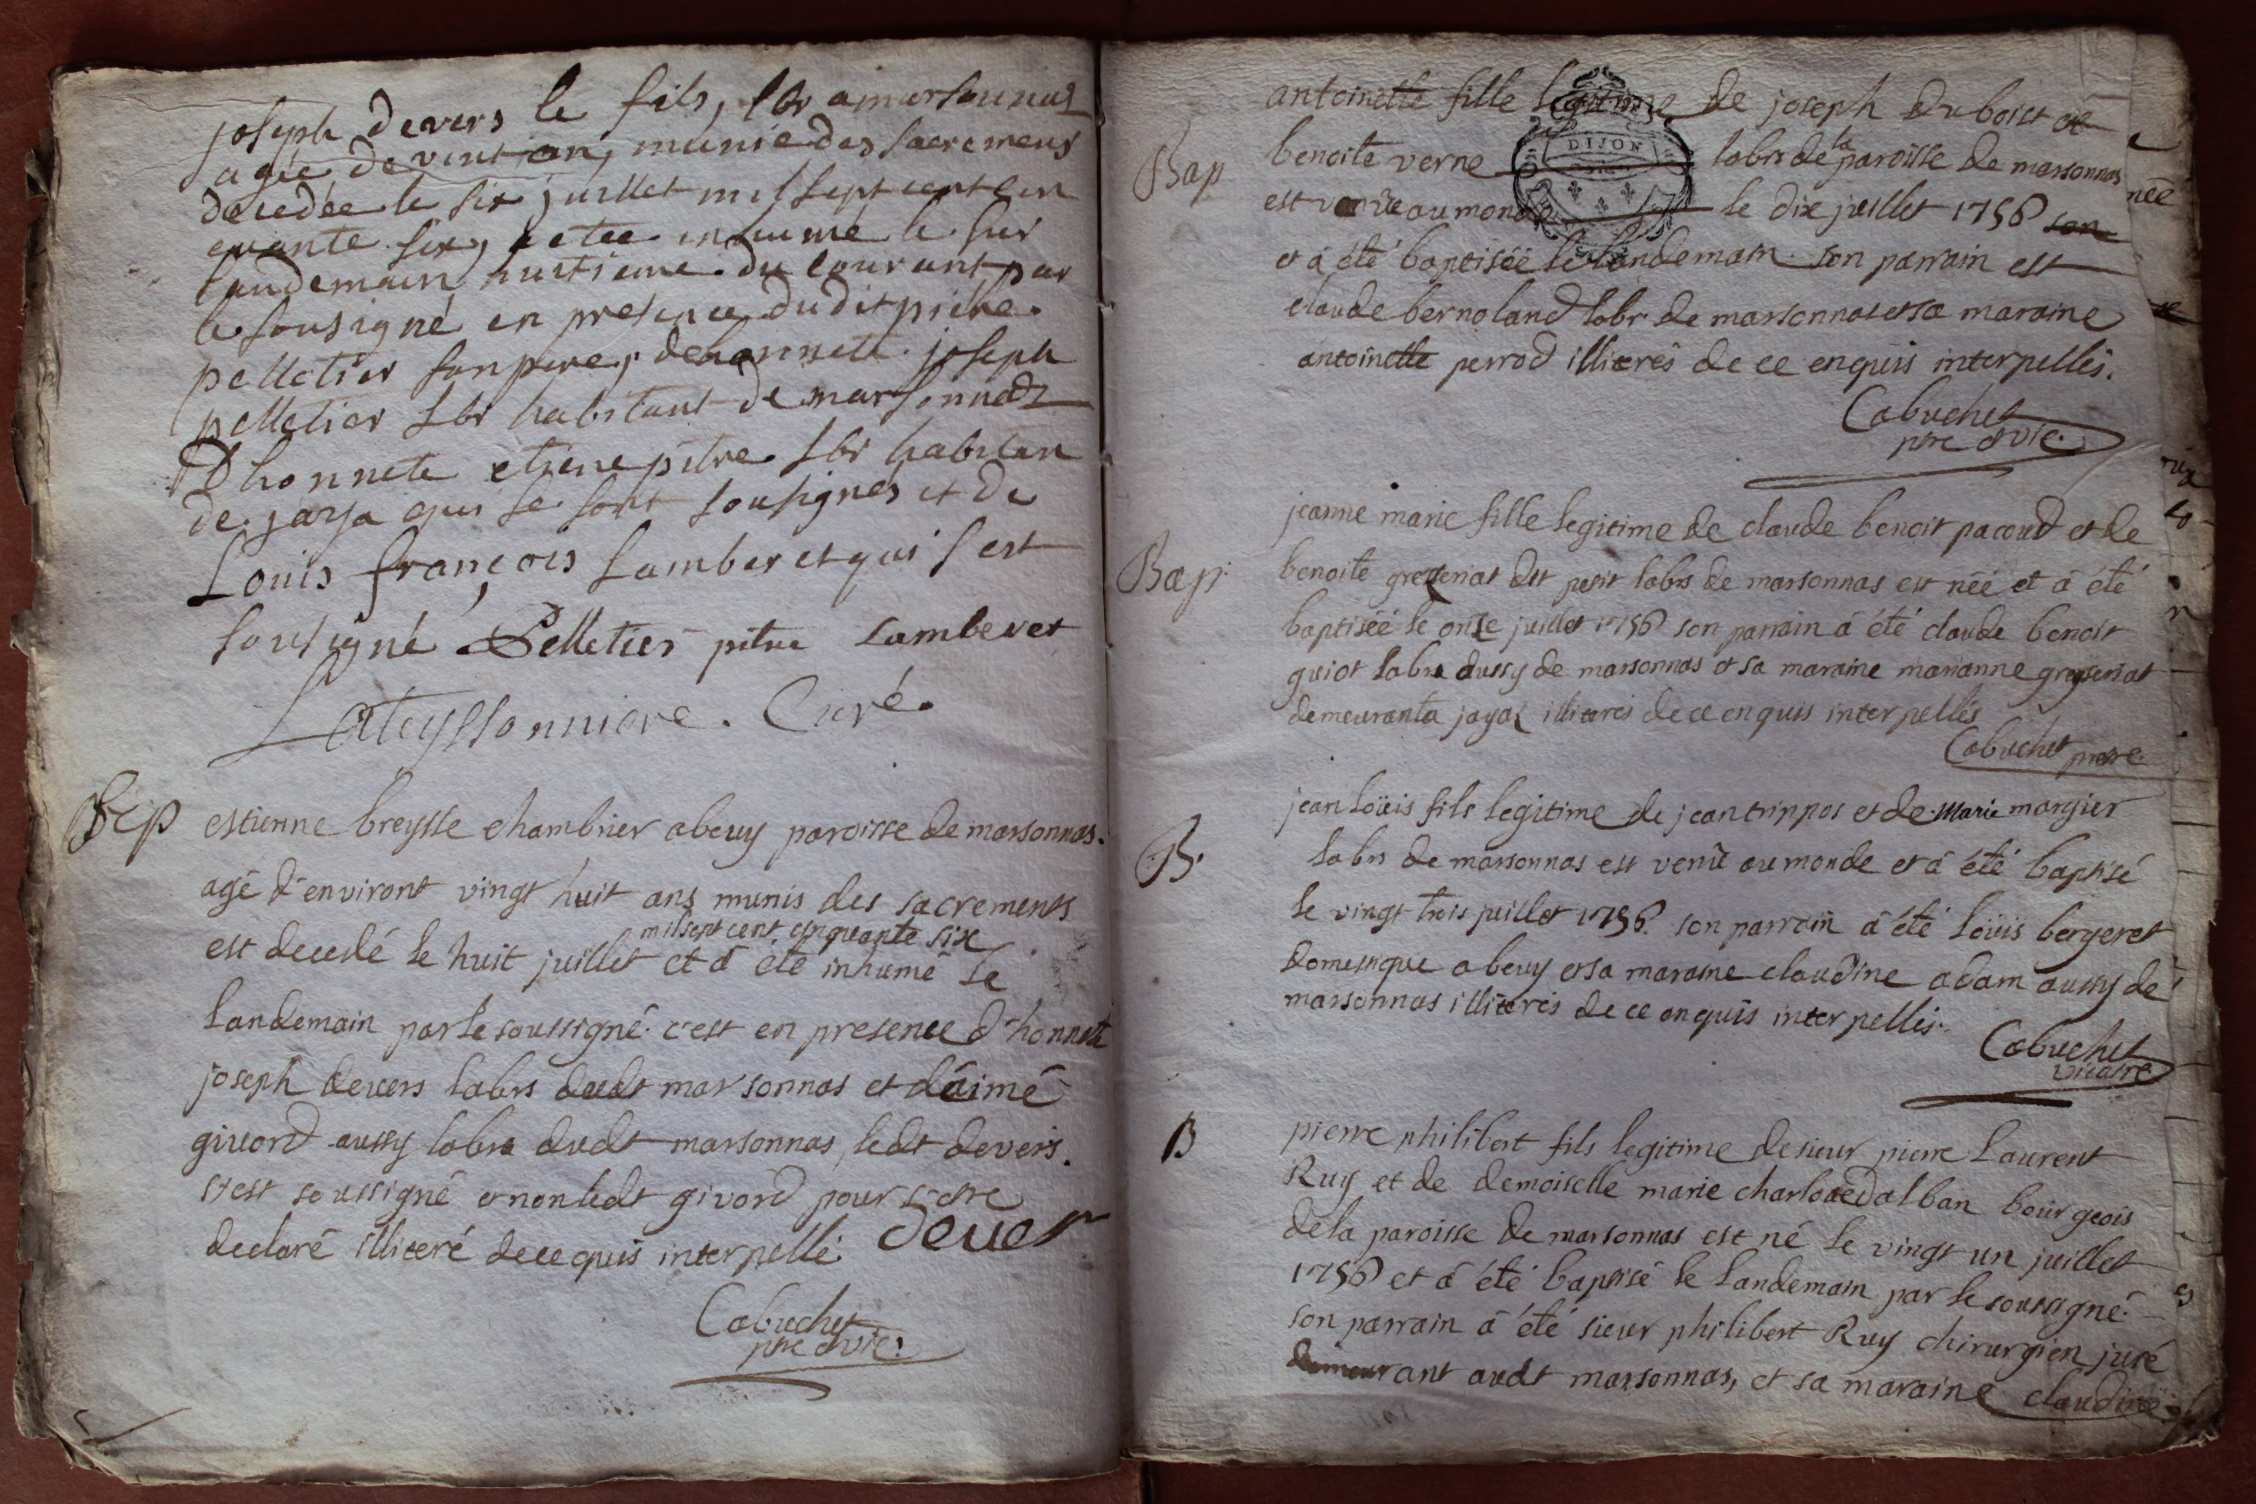 joseph devers le fils, lbr a marsonnas
agée de vint an, munie des sacremens
decedée le six juillet mil sept cent cin
quante six, et ete inhumé le sur
landemain huitieme du courant par
le sousigné en presence dudit pierre
pelletier son pere, de honnete joseph
pelletier lbr habitant de marsonnaz
D honnete etiene pitre lbr habitan
de jaya qui se sont sousignes et de
Louis françois Lamberet qui s est
sousigné Pelletier pitre Lamberet
Lateyssonniere. Curé.
Sep
estienne breysse chambrier a beuy paroisse de marsonnas.
agé d'environt vingt huit ans munis des sacrements
mil sept cent cinquante six
est decedé le huit juillet et â été inhumé le
landemain par le soussigné. c'est en presence d'honnete
joseph devers labrs dudt marsonnas et d'aimé
givord aussy labrs dudt marsonnas, ledt devers.
s'est soussigné et non ledt givord pour s'etre
declaré illiteré de ce quis interpellé. devers
Cabuchet
ptre & vic.
antoinette fille legitime de joseph du bois et de
DIJON
Bap
benoite verne labrs de la paroisse de marsonnas
née
est venüe au monde le dix juillet 1756 son
et â été baptiséé le landemain. son parrain est
claude bernoland labr de marsonnas et sa maraine
antoinette perrod illiterés de ce enquis interpellés.
Cabuchet
ptre & vic.
jeanne marie fille legitime de claude benoit pacoud et de
Bap.
benoite gregeriat dit petit labrs de marsonnas est néé et â été
baptiséé le onze juillet 1756 son parrain â été claude benoit
guiot labrs aussy de marsonnas et sa maraine marianne gregeriat
demeurant a jayat illiterés de ce enquis interpellés
Cabuchet ptre.
jean loüis fils legitime de jean trippos et de Marie mangier
B.
labrs de marsonnas est venü au monde et â été baptisé
le vingt trois juillet 1756. son parrain â été loüis bergeret
domestique a beuy et sa maraine claudine adam aussy de
marsonnas illiterés de ce enquis interpellés.
Cabuchet
vicaire
B
pierre philibert fils legitime de sieur pierre Laurent
Ruy et de demoiselle marie charlote dalban bourgeois
de la paroisse de marsonnas est né le vingt un juillet
1756 et â été baptisé le landemain par le soussigné.
son parrain â été sieur philibert Ruy chirurgien juré
demeurant audt marsonnas, et sa maraine claudine